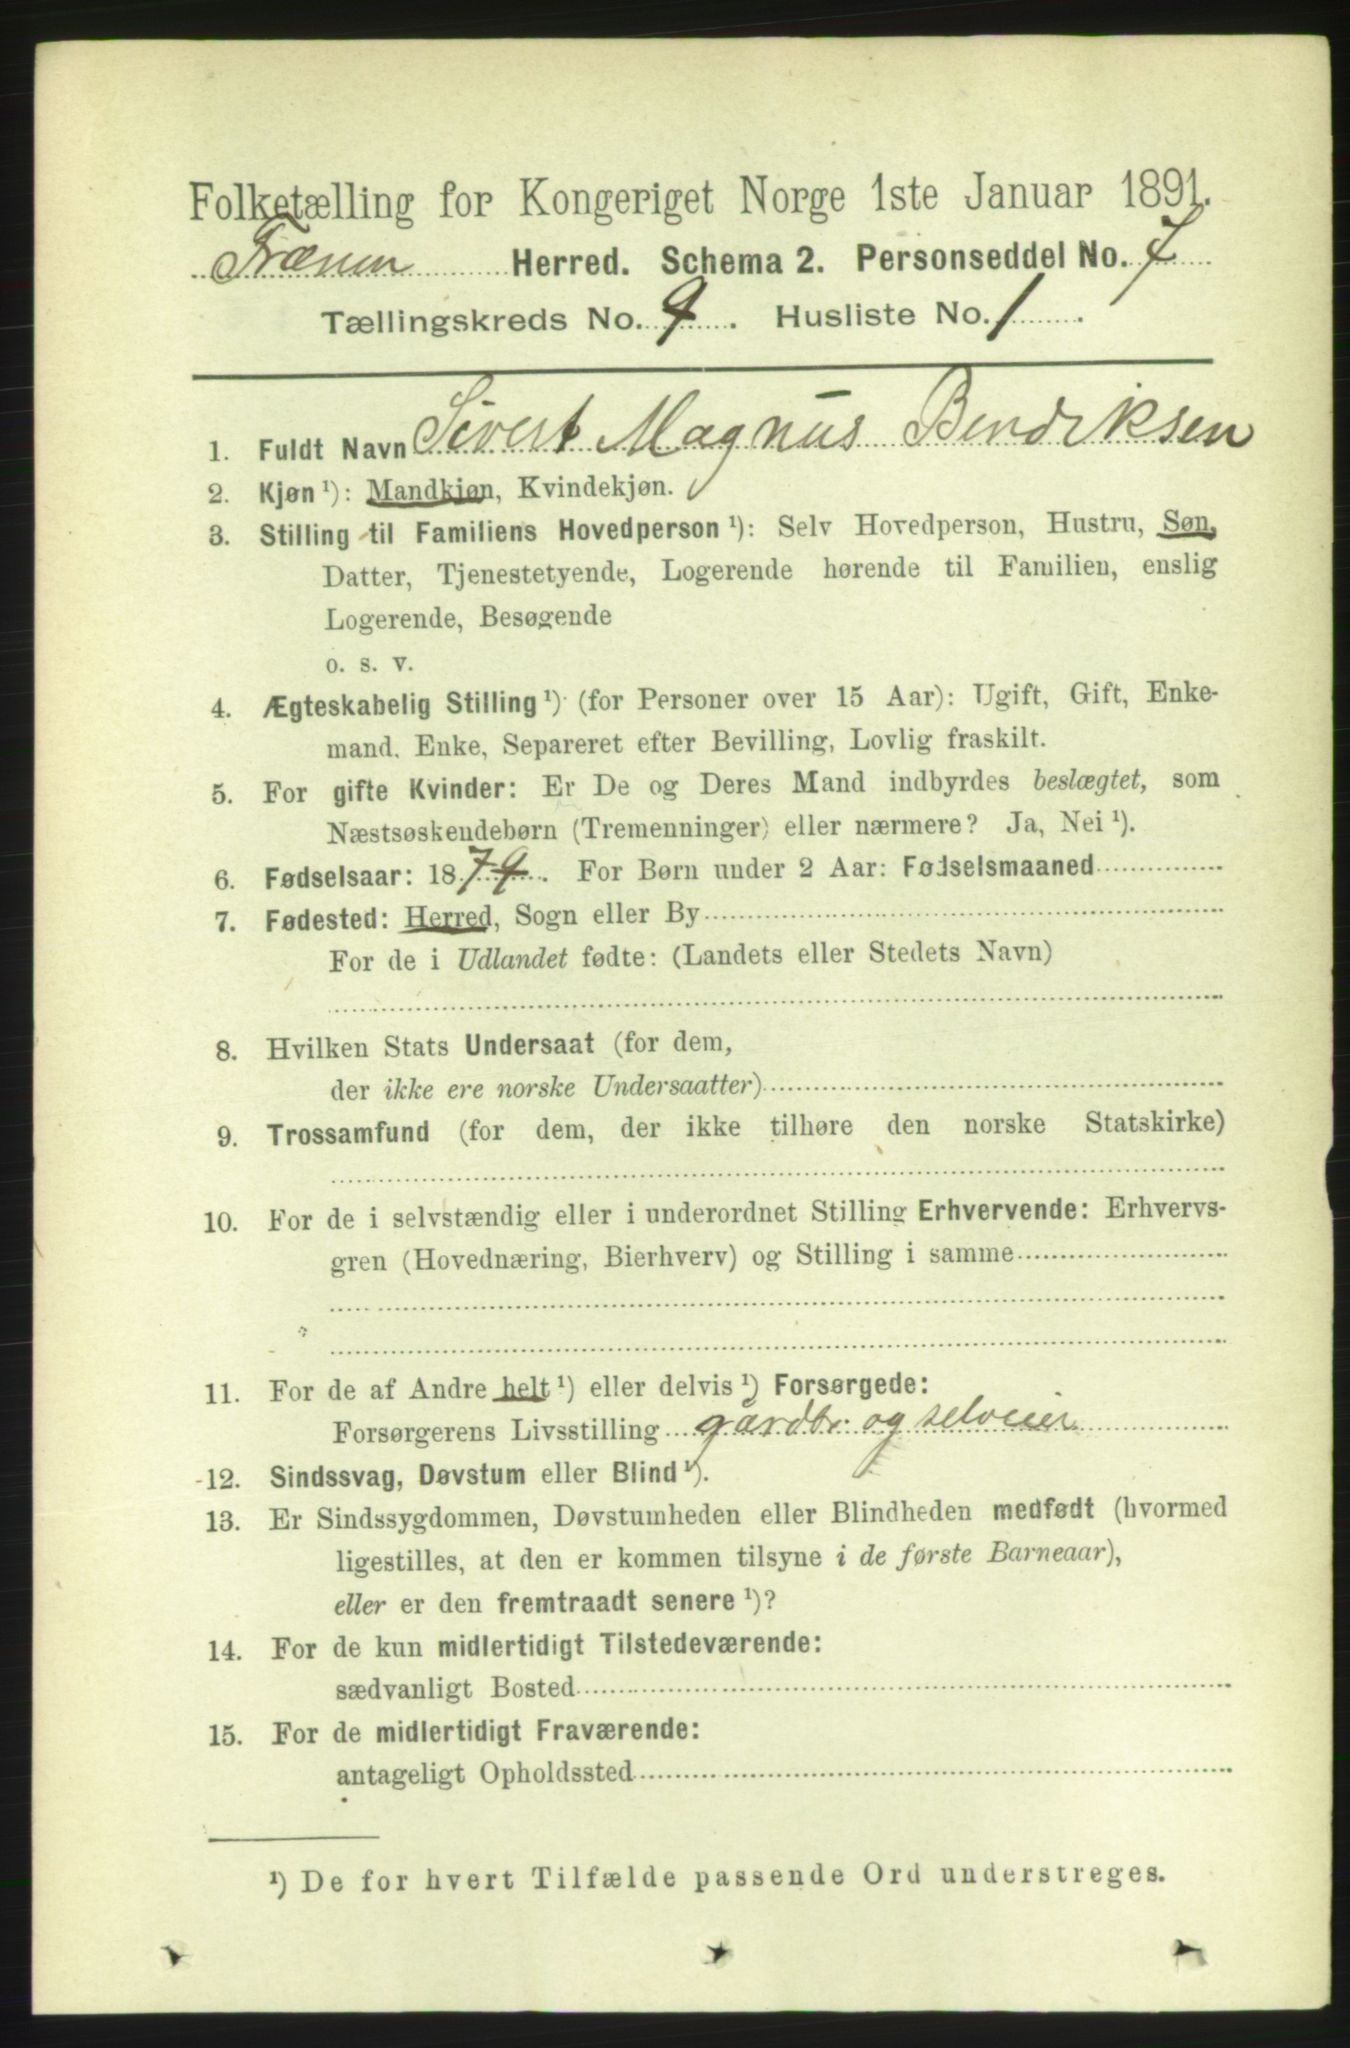 Folketælling for Kongeriget Norge 1ste Januar 1891.
Frænen Herred. Schema 2. Personseddel No. 7
Tællingskreds No. 9. Husliste No. 1.
1. Fuldt Navn Sivert Magnus Bendiksen
2. Kjøn ¹): Mandkjøn, Kvindekjøn.
3. Stilling til Familiens Hovedperson ¹): Selv Hovedperson, Hustru, Søn,
Datter, Tjenestetyende, Logerende hørende til Familien, enslig
Logerende, Besøgende
o. s. v.
4. Ægteskabelig Stilling ¹) (for Personer over 15 Aar): Ugift, Gift, Enke-
mand, Enke, Separeret efter Bevilling, Lovlig fraskilt.
5. For gifte Kvinder: Er De og Deres Mand indbyrdes beslægtet, som
Næstsøskendebørn (Tremenninger) eller nærmere? Ja, Nei ¹).
6. Fødselsaar: 1879. For Børn under 2 Aar: Fødselsmaaned
7. Fødested: Herred, Sogn eller By
For de i Udlandet fødte: (Landets eller Stedets Navn)
8. Hvilken Stats Undersaat (for dem,
der ikke ere norske Undersaatter)
9. Trossamfund (for dem, der ikke tilhøre den norske Statskirke)
10. For de i selvstændig eller i underordnet Stilling Erhvervende: Erhvervs-
gren (Hovednæring, Bierhverv) og Stilling i samme
11. For de af Andre helt ¹) eller delvis ¹) Forsørgede:
Forsørgerens Livsstilling gårdbr. og selveier
12. Sindssvag, Døvstum eller Blind ¹).
13. Er Sindssygdommen, Døvstumheden eller Blindheden medfødt (hvormed
ligestilles, at den er kommen tilsyne i de første Barneaar),
eller er den fremtraadt senere ¹)?
14. For de kun midlertidigt Tilstedeværende:
sædvanligt Bosted
15. For de midlertidigt Fraværende:
antageligt Opholdssted
¹) De for hvert Tilfælde passende Ord understreges.